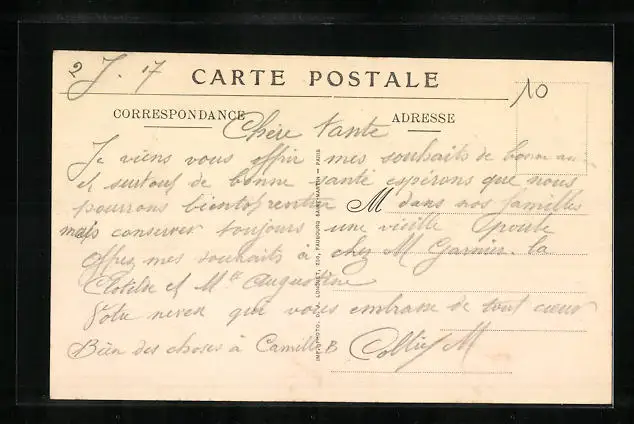 2 J. 17
CARTE POSTALE
10
CORRESPONDANCE
ADRESSE
Chère tante
Je viens vous offrir mes souhaits de bonne an-
et surtout de bonne santé espérons que nous
pourrons bientôt rentrer M dans nos familles
mais conserver toujours une vieille
Offrez mes souhaits à chez M Garnier. la
Clotilde et Mlle Augustine
Votre neveu qui vous embrasse de tout cœur
Bien des choses à Camille B M